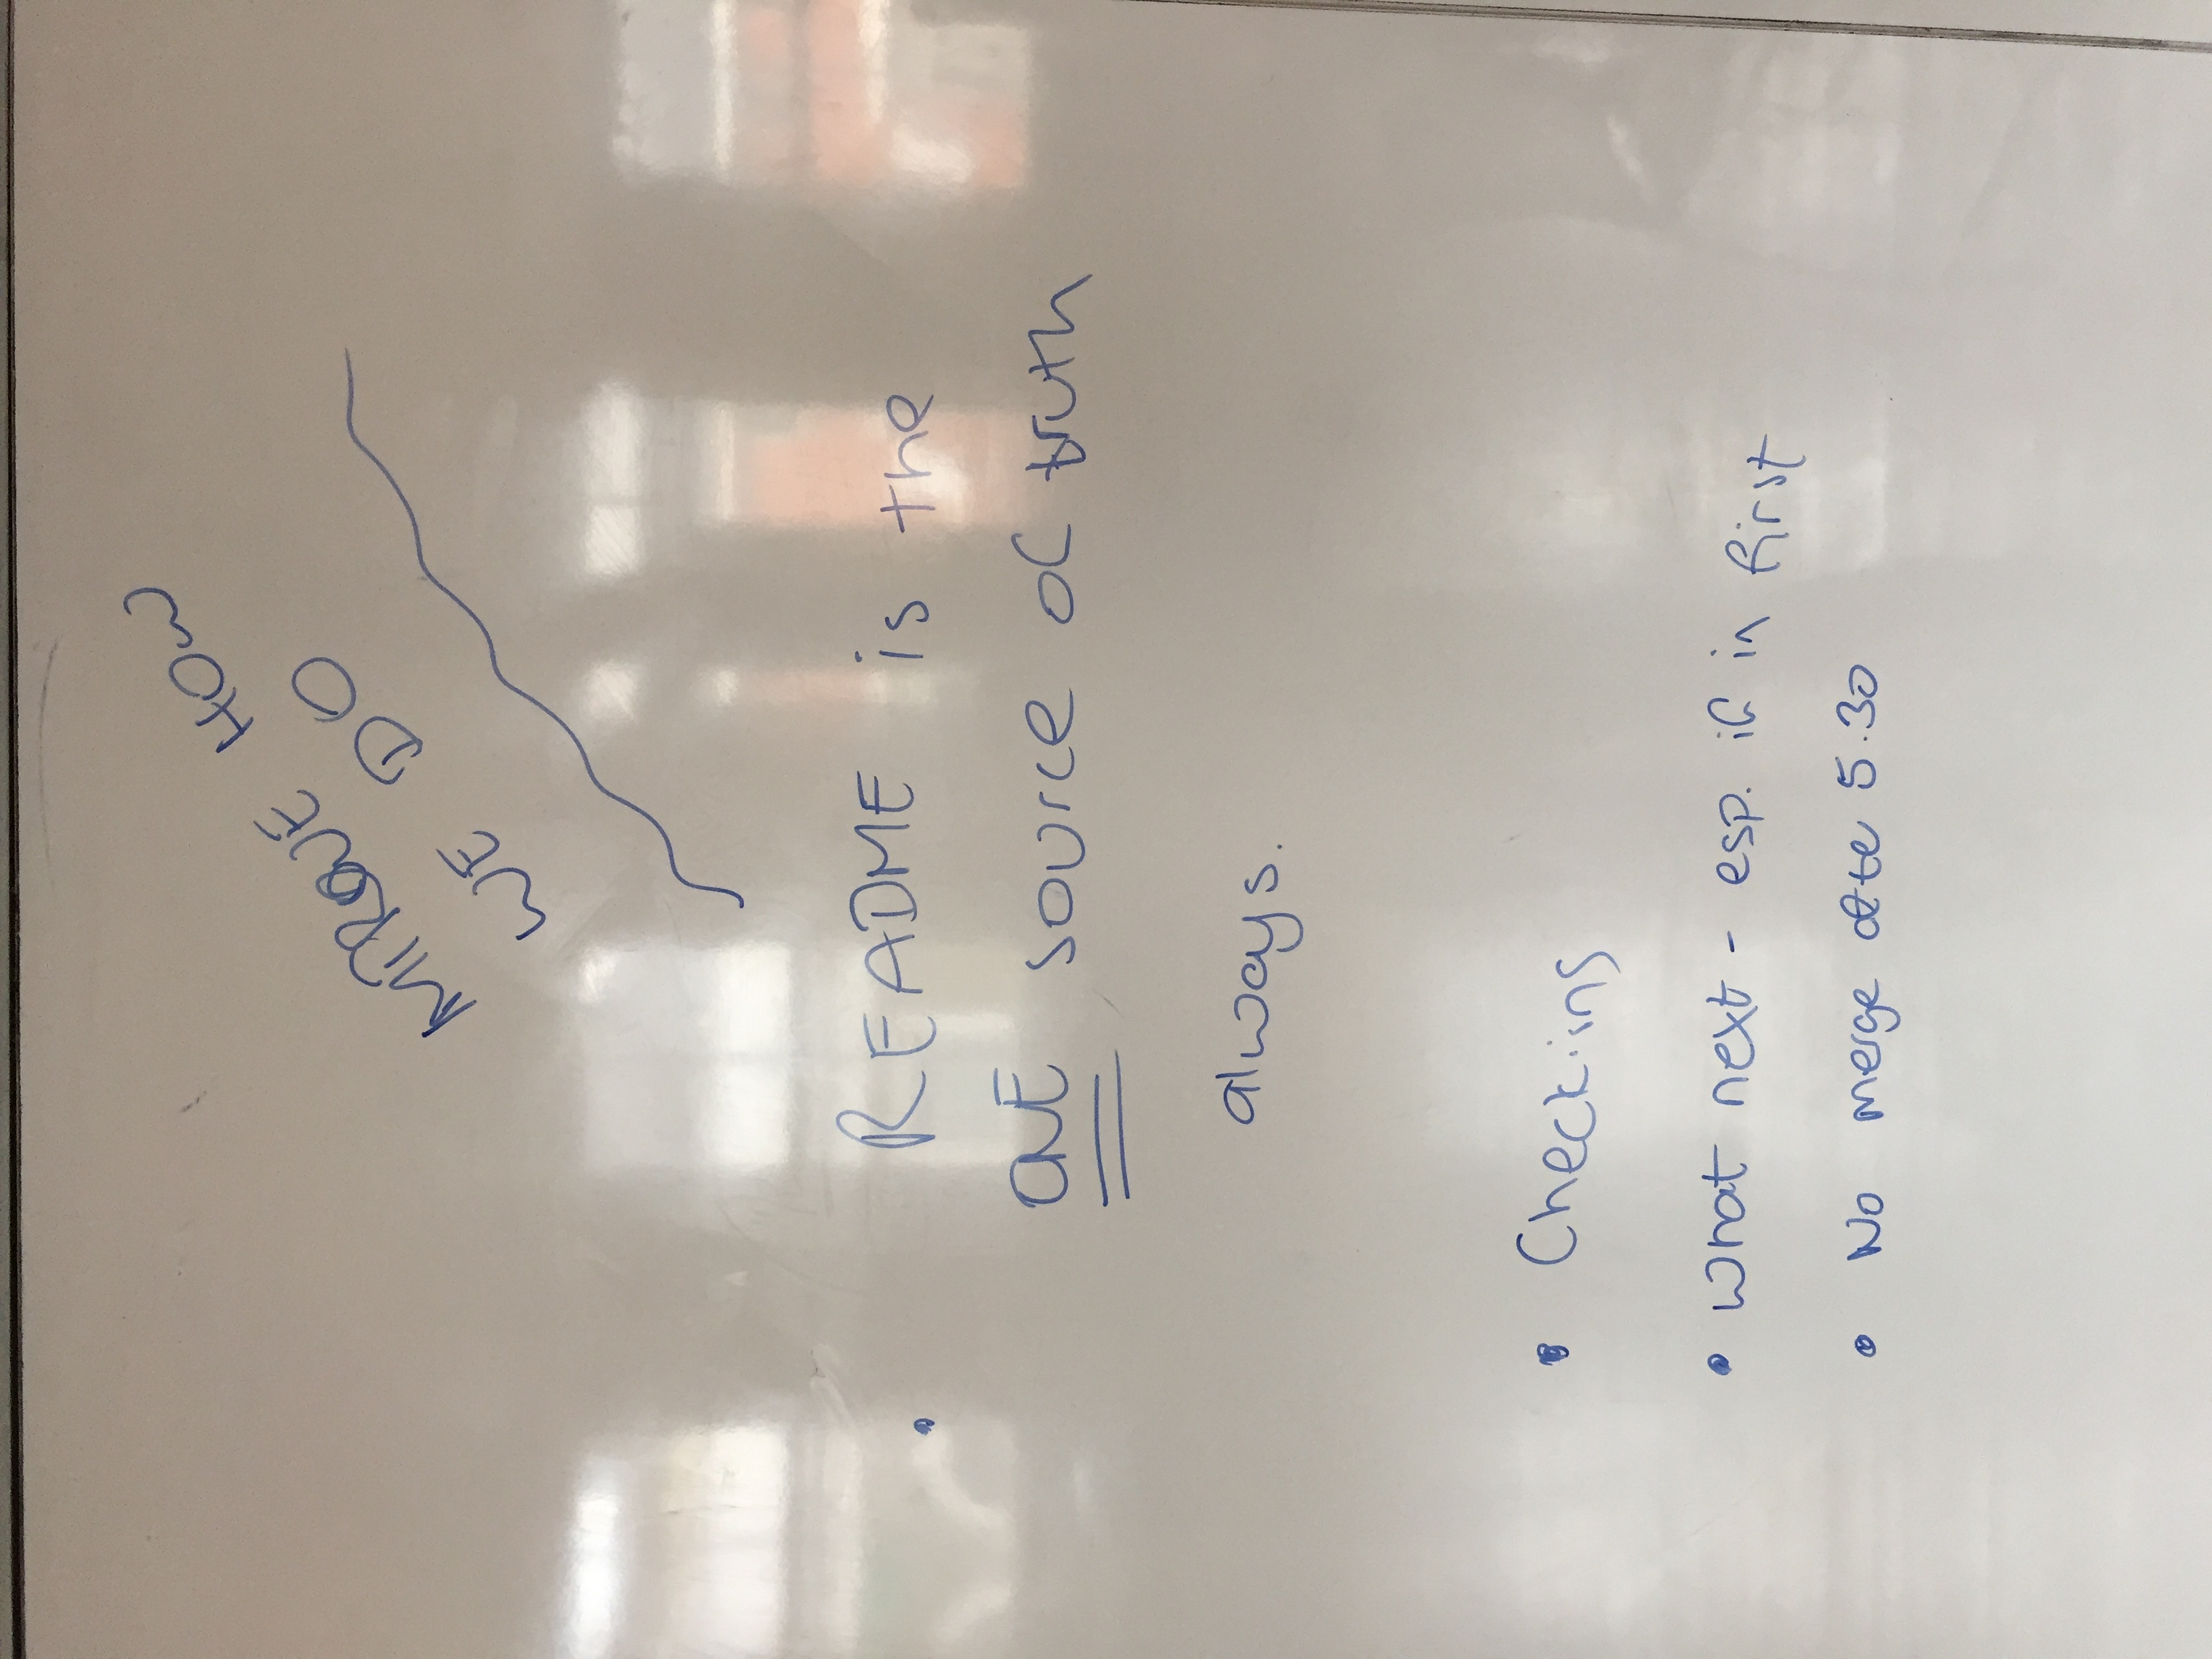 IMPROVE HOW
WE DO
• README is the
ONE source of truth
always.
• Check-ins
• What next - esp. if in first
• No merge after 5.30